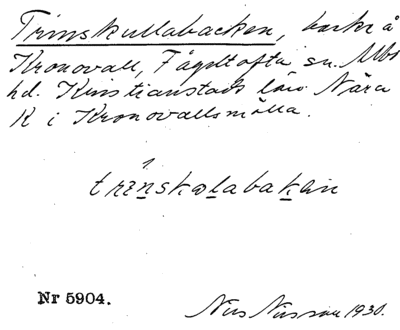 Trinskullabacken, backe å
Kronovall, Fågeltofta sn. Albo
hd. Kristianstads län. Nära
K i Kronovallsmölla.
trinskəlabakän
Nr 5904.
Nils Nilsson 1930.